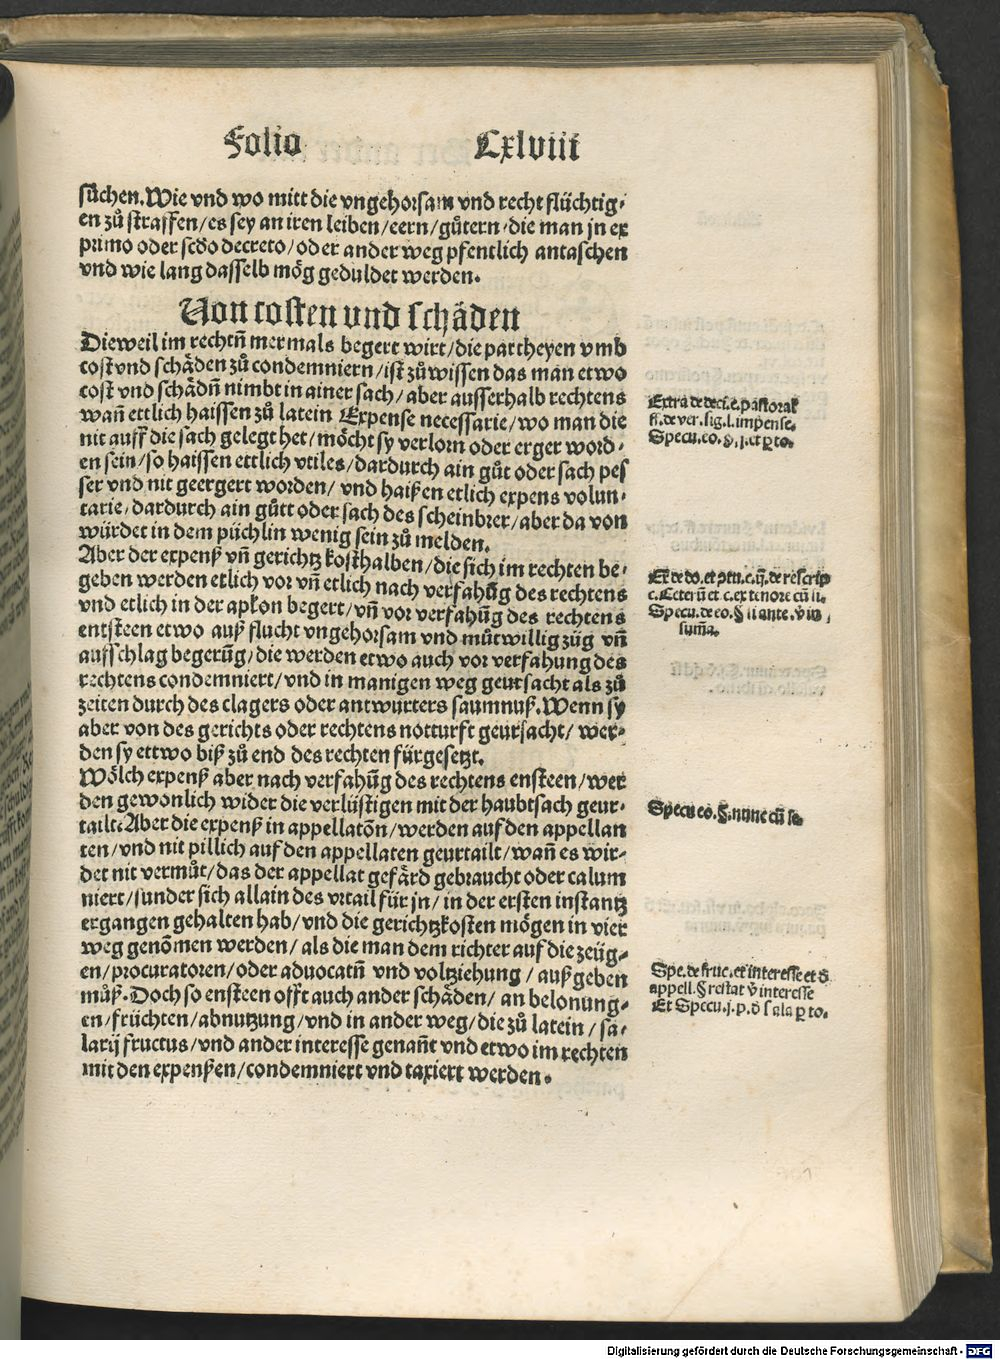 Folio Cxlviii
sůchen. Wie vnd wo mitt die vngehorsam vnd recht flüchtig⸗
en zů straffen/ es sey an iren leiben/ eern/ gůtern/ die man jn ex
primo oder scḋo decreto/ oder ander weg pfentlich antaschen
vnd wie lang dasselb mög geduldet werden.
Von costen vnd schäden
Dieweil im rechtn̄ mermals begert wirt/ die partheyen vmb
cost vnd schäden zů condemniern/ ist zů wissen das man etwo
cost vnd schädn̄ nimbt in ainer sach/ aber ausserhalb rechtens
wan̄ ettlich haissen zů latein Expense necessarie/ wo man die
nit auff die sach gelegt het/ möcht sy verlorn oder erger word⸗
en sein/ so haissen ettlich vtiles/ dardurch ain gůt oder sach pes
ser vnd nit geergert worden/ vnd haißen etlich expens volun⸗
tarie/ dardurch ain gůtt oder sach des scheinbrer/ aber da von
würdet in dem püchlin wenig sein zů melden.
Aber der expenß vn̄ gerichtz kosthalben/ die sich im rechten be⸗
geben werden etlich vor vn̄ etlich nach verfahūg des rechtens
vnd etlich in der apl̄on begert/ vn̄ vor verfahūg des rechtens
entsteen etwo auß flucht vngehorsam vnd můtwillig züg vn̄
aufschlag begerūg/ die werden etwo auch vor verfahung des
rechtens condemniert/ vnd in manigen weg geursacht als zů
zeiten durch des clagers oder antwurters saumnuß. Wenn sy
aber von des gerichts oder rechtens notturft geursacht/ wer⸗
den sy ettwo biß zů end des rechten fürgesetzt.
Wölch expenß aber nach verfahūg des rechtens ensteen/ wer
den gewonlich wider die verlüstigen mit der haubtsach geur⸗
tailt. Aber die expenß in appellatōn/ werden auf den appellan
ten/ vnd nit pillich auf den appellaten geurtailt/ wan̄ es wir⸗
det nit vermůt/ das der appellat gefärd gebraucht oder calum
niert/ sunder sich allain des vrtail für jn/ in der ersten instantz
ergangen gehalten hab/ vnd die gerichtzkosten mögen in vier
weg genōmen werden/ als die man dem richter auf die zeüg⸗
en/ procuratoren/ oder aduocatn̄ vnd voltziehung/ auß geben
můß. Doch so ensteen offt auch ander schäden/ an belonung⸗
en/ früchten/ abnutzung/ vnd in ander weg/ die zů latein/ sa⸗
larij fructus/ vnd ander interesse genan̄t vnd etwo im rechten
mit den expenßen/ condemniert vnd taxiert werden.
Extra de deci. c. pastoral
ff. de ver. sig. l. impense.
Specu. eo. §. j. et ꝑ to.
Ex̄ de do. et
de rescrip
c. Ceterū et c. ex tenore cū ij.
Specu. de eo. § ij ante. v̄ in
sum̄a.
Specu eo. §. nunc cū se.
Spe. de fruc. et interesse et d̄
appell. § restat v̄ interesse
Et Specu. j. p. d̄ sala ꝑ to.
Digitalisierung gefördert durch die Deutsche Forschungsgemeinschaft - DFG